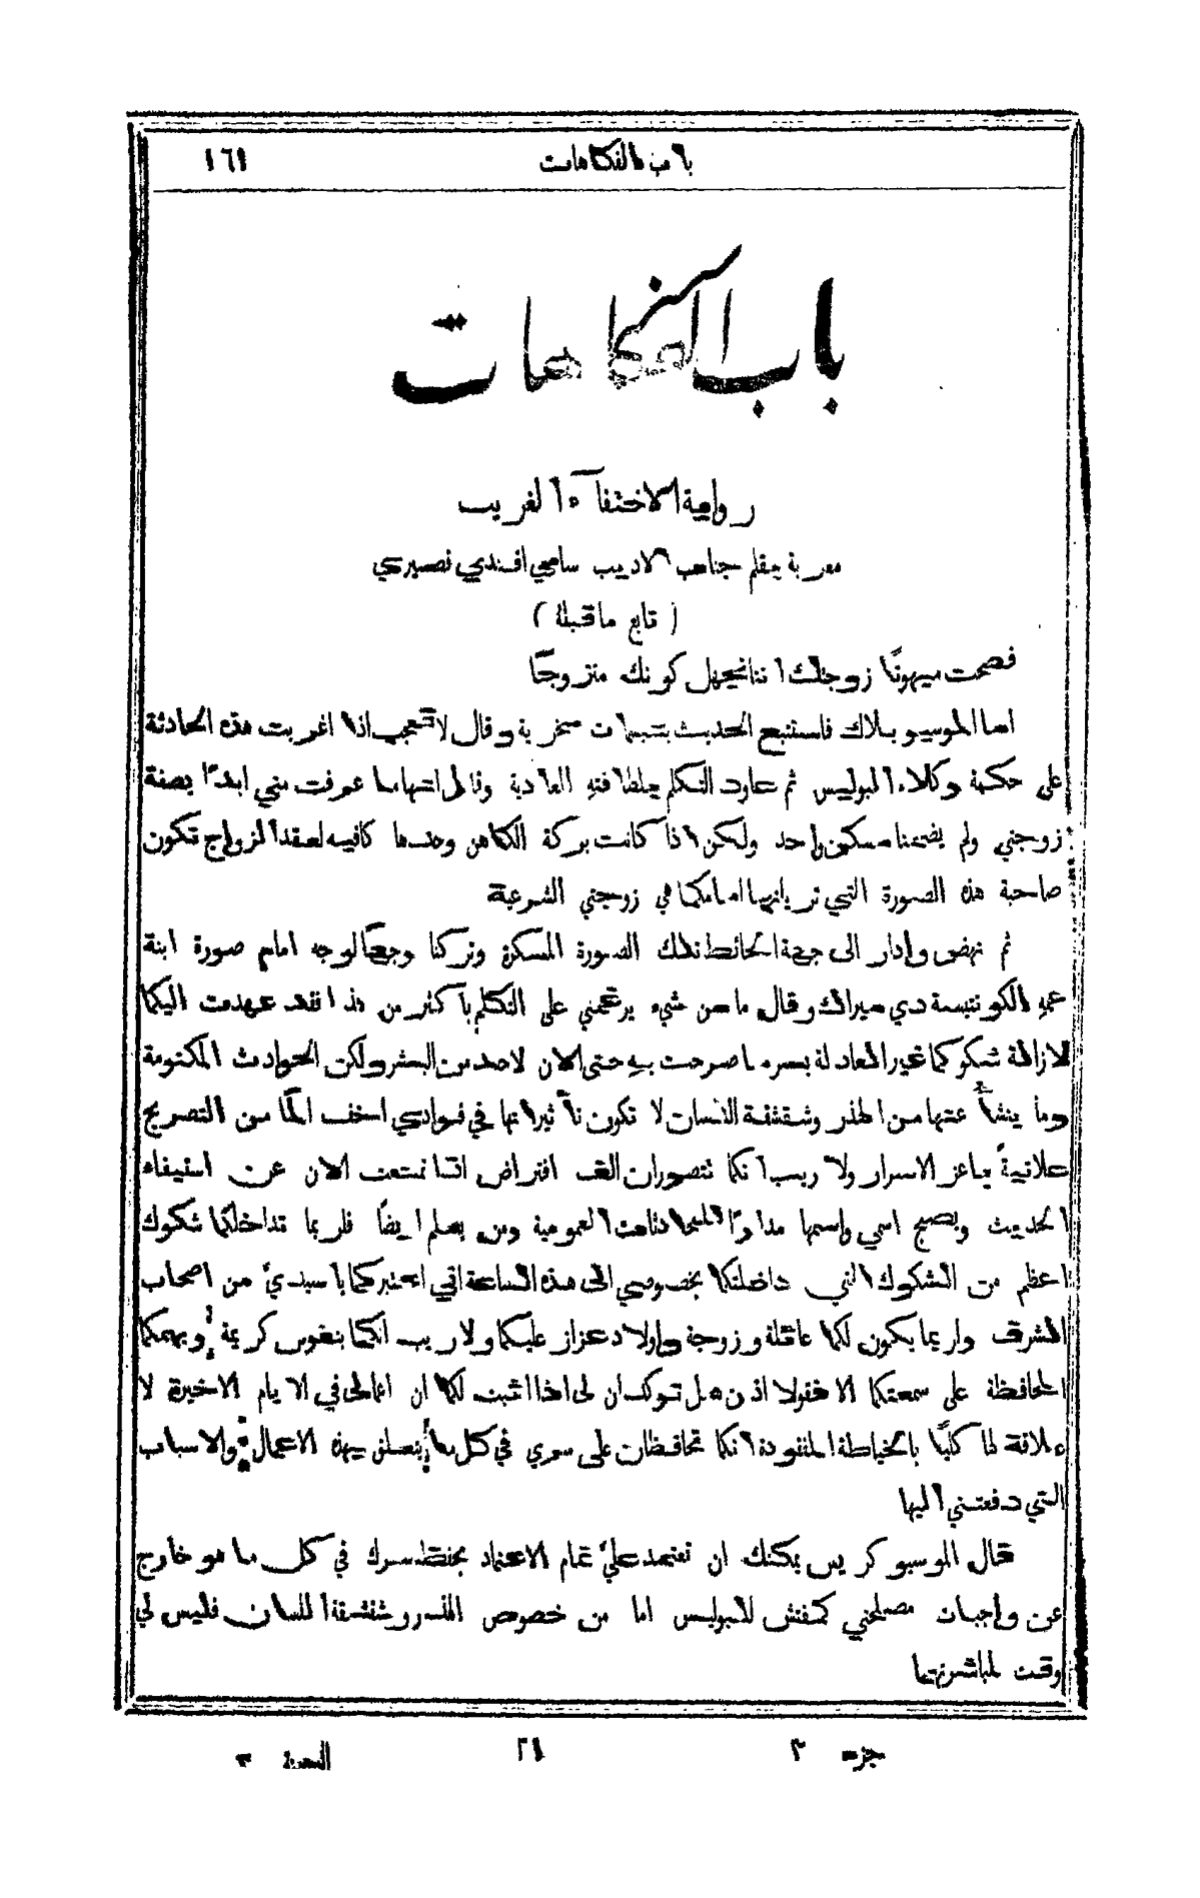 باب الفكاهات ١٦١
باب الفكاهات
رواية الاختفآء الغريب
معربة بقلم جناب الاديب سامي افندي قصيري
( تابع ما قبلهُ )
فصحت مبهوتًا زوجتك اننا نجهل كونك متزوجًا
اما الموسيو بلاك فاستتبع الحديث بتبسمات سخرية وقال لا تعجب اذا اغربت هذه الحادثة
على حكمة وكلاء البوليس ثم عاود التكلم بلطافته العادية وقال انها ما عرفت مني ابدًا بصفة
زوجتي ولم يضمنا مسكن واحد ولكن اذا كانت بركة الكاهن وحدها كافيه لعقد الزواج تكون
صاحبة هذه الصورة التي تريانها امامكما هي زوجتي الشرعية
ثم نهض وادار الى جهة الحائط تلك الصورة المسكرة وتركنا وجهًا لوجه امام صورة ابنة
عمهِ الكونتيسة دي ميراك وقال ما من شيء يرغمني على التكلم بآكثر من هذا فقد عهدت اليكما
لازالة شكوكما غير العادلة بسر ما صرحت بهِ حتى الان لاحد من البشر ولكن الحوادث المكتومة
وما ينشأ عنها من الهذر وشقشقة اللسان لا تكون تأثيراتها في فوادي اخف المًا من التصريح
علانيةً باعز الاسرار ولا ريب انكما تتصوران الف افتراض اذا امتنعت الان عن استيفاء
الحديث ويصبح اسمي واسمها مدارًا للمحادثات العمومية ومن يعلم ايضًا فلربما تداخلكما شكوك
اعظم من الشكوك التي داخلتكما بخصوصي الى هذه الساعة اني اعتبركما يا سيديَّ من اصحاب
الشرف ولربما يكون لكما عائلة وزوجة واولاد عزاز عليكما ولا ريب انكما بنفوس كريمة ويهمكما
المحافظة على سمعتكما الا فقولا اذن هل توكدان لي اذا اثبت لكما ان اعمالي في الايام الاخيرة لا
علاقة لها كليًا بالخياطة المفقودة انكما تحافظان على سري في كل ما يتعلق بهذه الاعمال والاسباب
التي دفعتني اليها
فقال الموسيو كريس يمكنك ان تعتمد عليَّ تمام الاعتماد بحفظ سرك في كل ما هو خارج
عن واجبات مصلحتي كمفتش للبوليس اما من خصوص الهذر وشقشقة اللسان فليس لي
وقت لمباشرتها
جزء ٣ ٢١ السنة ٣